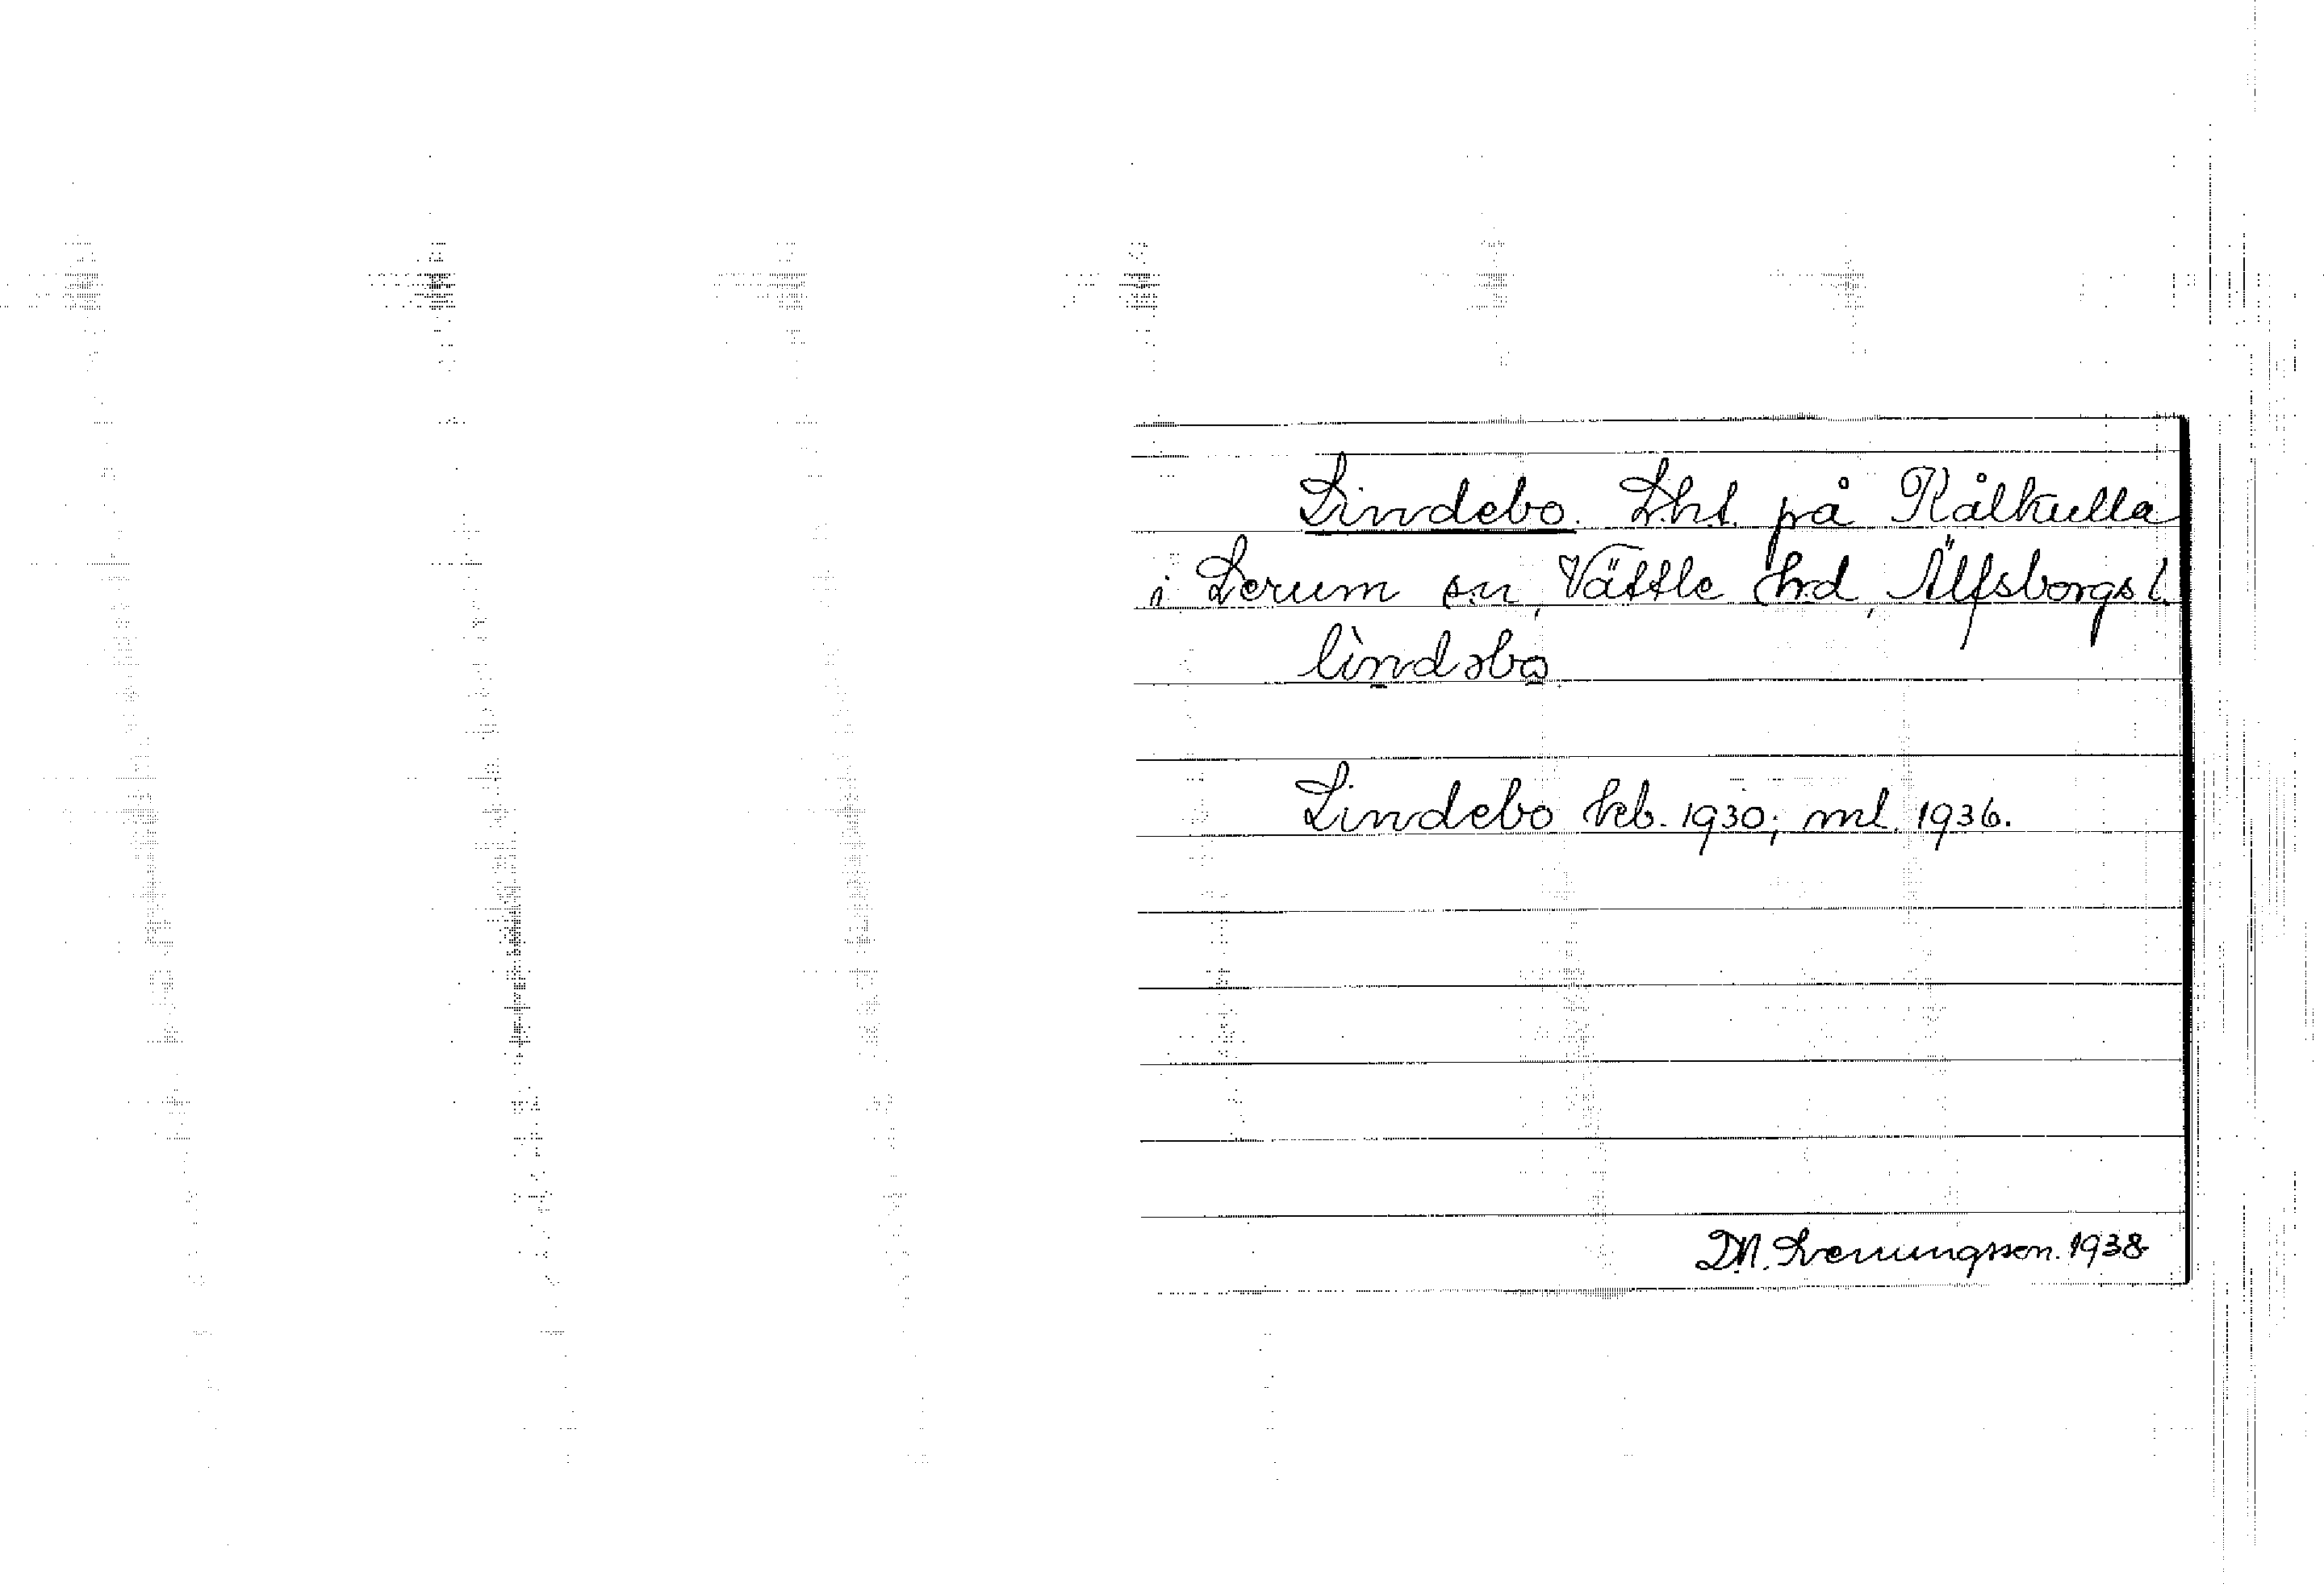 Lindebo. Lht. på Rålkulla
i Lerum sn, Vättle hd, Älfsborgs l.
lìndəbo
Lindebo kb. 1930; ml. 1936.
D.N. 1938